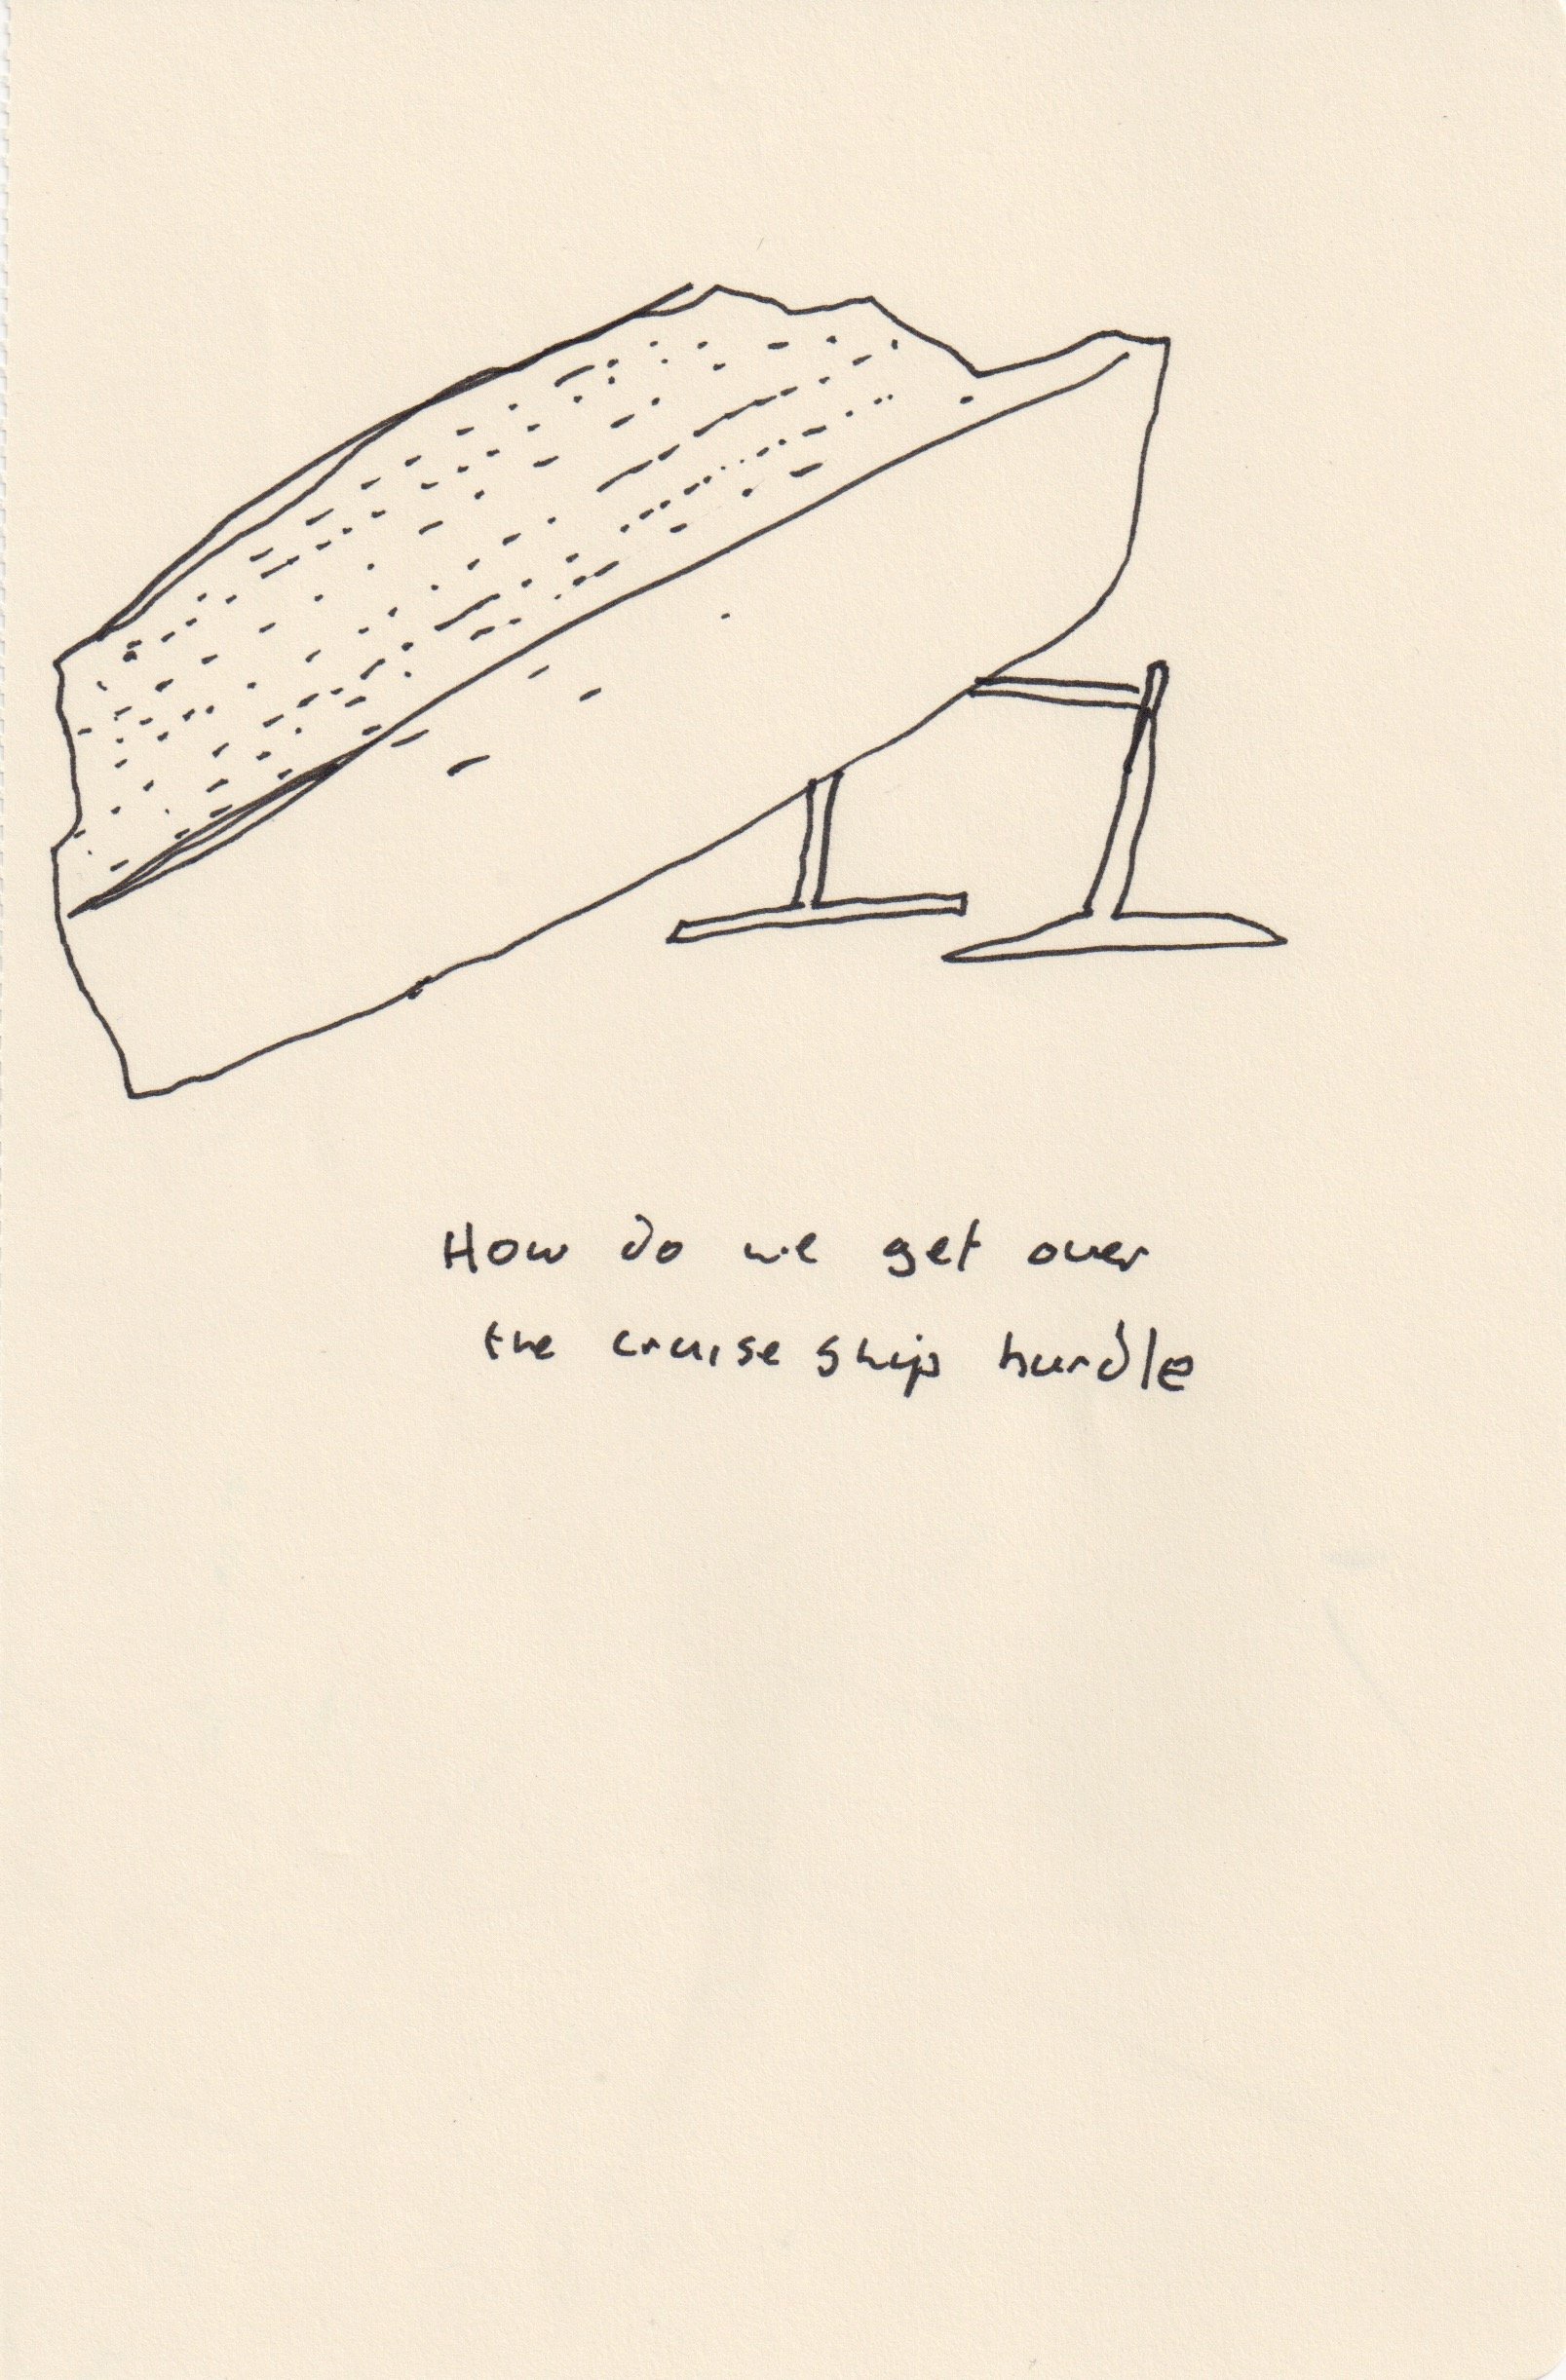 How do we get over
the cruise ship hurdle